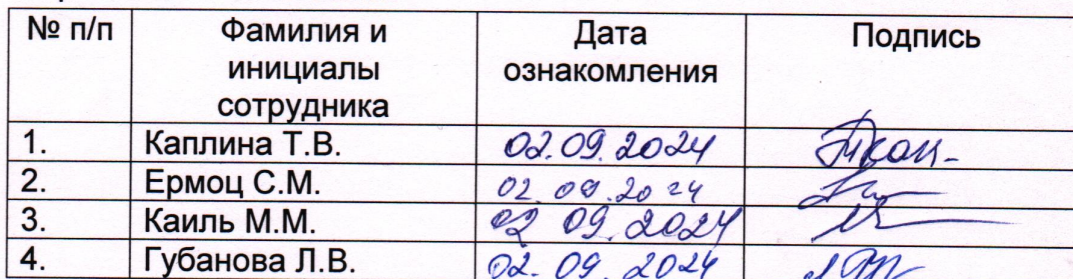 № п/п Фамилия и инициалы сотрудника Дата ознакомления Подпись
1. Каплина Т.В. 02.09.2024
2. Ермоц С.М. 02.09.2024
3. Каиль М.М. 02 09.2024
4. Губанова Л.В. 02. 09. 2024